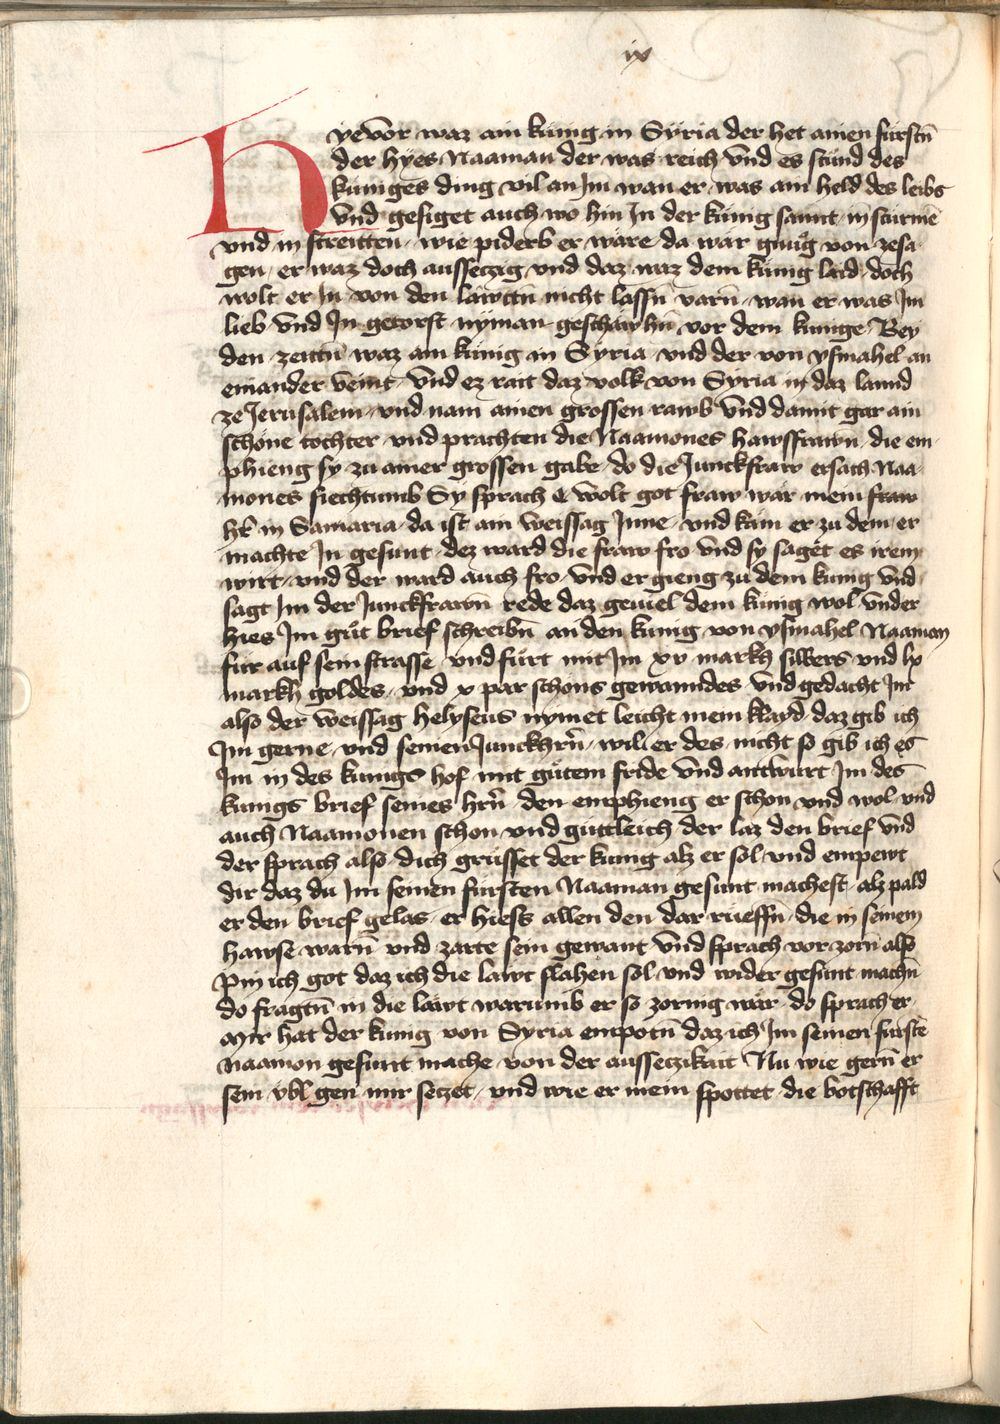 ix
Hyevor waz ain künig in Syria der het ainen fürstn̄
der hyes Naaman der was reich vnd es stünd des
küniges ding vil an Im wan er was ain held des leibs
vnd gesiget auch wo hin In der künig sannt in stürmē
vnd in streitten wie piderb er wäre da wär gnůg von zesa
gen er waz doch ausseczig vnd daz waz dem künig laid doch
wolt er In von den läwttn̄ nicht lassn̄ varn̄ wan er was Im
lieb vnd In getorst nyman geschäwhn̄ vor dem kunige Bey
den zeittn̄ waz ain künig in Syria vnd der von ysmahel an
einander veint vnd ez rait daz volk von Syria in daz lannd
ze Jerusalem vnd nam ainen grossen rawb vnd damit gar ain
schöne tochter vnd prachten die Naamones hawsfrawn̄ die em
phieng sy zu ainer grossen gabe do die Junckfraw ersach Naa
mones siechtumb Sy sprach O wolt got fraw wär mein fraw
hr̄ in Samaria da ist ain weissag Inne vnd käm er zu dem er
machte In gesunt dez ward die fraw fro vnd sy saget es irem
wirt vnd der ward auch fro vnd er gieng zu dem kunig vnd
sagt Im der Junckfrawn̄ rede daz geuiel dem künig wol vnder
hies Im gůt brief schreibn̄ an den kunig von ysmahel Naaman
für auf sein strasse vnd fürt mit Im xv markh silbers vnd lx
markh goldes vnd x par schöns gewanndes vnd gedacht Im
also der weissag Helyseus nymet leicht mein klayd daz gib ich
Im gerne vnd seinen Junckhrn̄ wil er des nicht so gib ich es
Im in des kunigs hof mit gůtem fride vnd antwurt Im des
kunigs brief seines hrn̄ den emphieng er schon vnd wol vnd
auch Naamonen schon vnd güttleich der laz den brief vnd
der sprach also dich grüsset der kunig alz er sol vnd empewt
dir daz du Im seinen fürsten Naaman gesunt machest alz pald
er den brief gelas er hiess allen den dar rüeffn̄ die in seinem
hawse warn̄ vnd zarte sein gewant vnd sprach vor zorn also
Pin ich got daz ich die läwt slahen sol vnd wider gesunt machn̄
do fragtn̄ in die läwt warumb er so zornig wär do sprach er
Mir hat der kunig von Syria empotn̄ daz ich Im seinen fürstē
Naamon gesunt mache von der ausseczikait Nu wie gern̄ er
sein vbl gen mir seczet vnd wie er mein spottet die botschafft